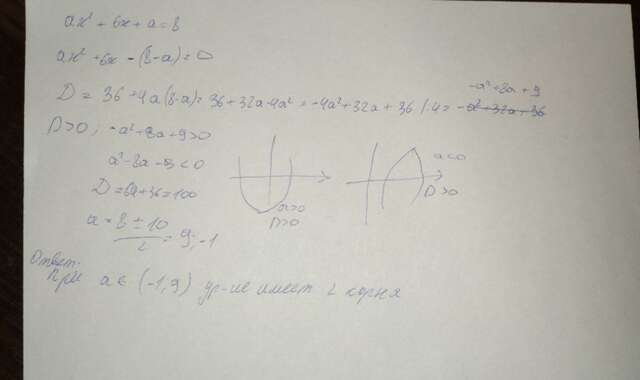 ax² + 6x + a = 8
ax² + 6x - (8-a) = 0
-a² + 8a + 9
D = 36 + 4a(8-a) = 36 + 32a - 4a² = -4a² + 32a + 36 | :4 = -a² + 32a + 36
D>0; -a² + 8a + 9 > 0
a² - 8a - 9 < 0
D = 64 + 36 = 100
a = 8 ± 10
2 = 9; -1
a>0
D>0
a<0
D>0
Ответ:
При a ∈ (-1, 9) ур-ие имеет 2 корня